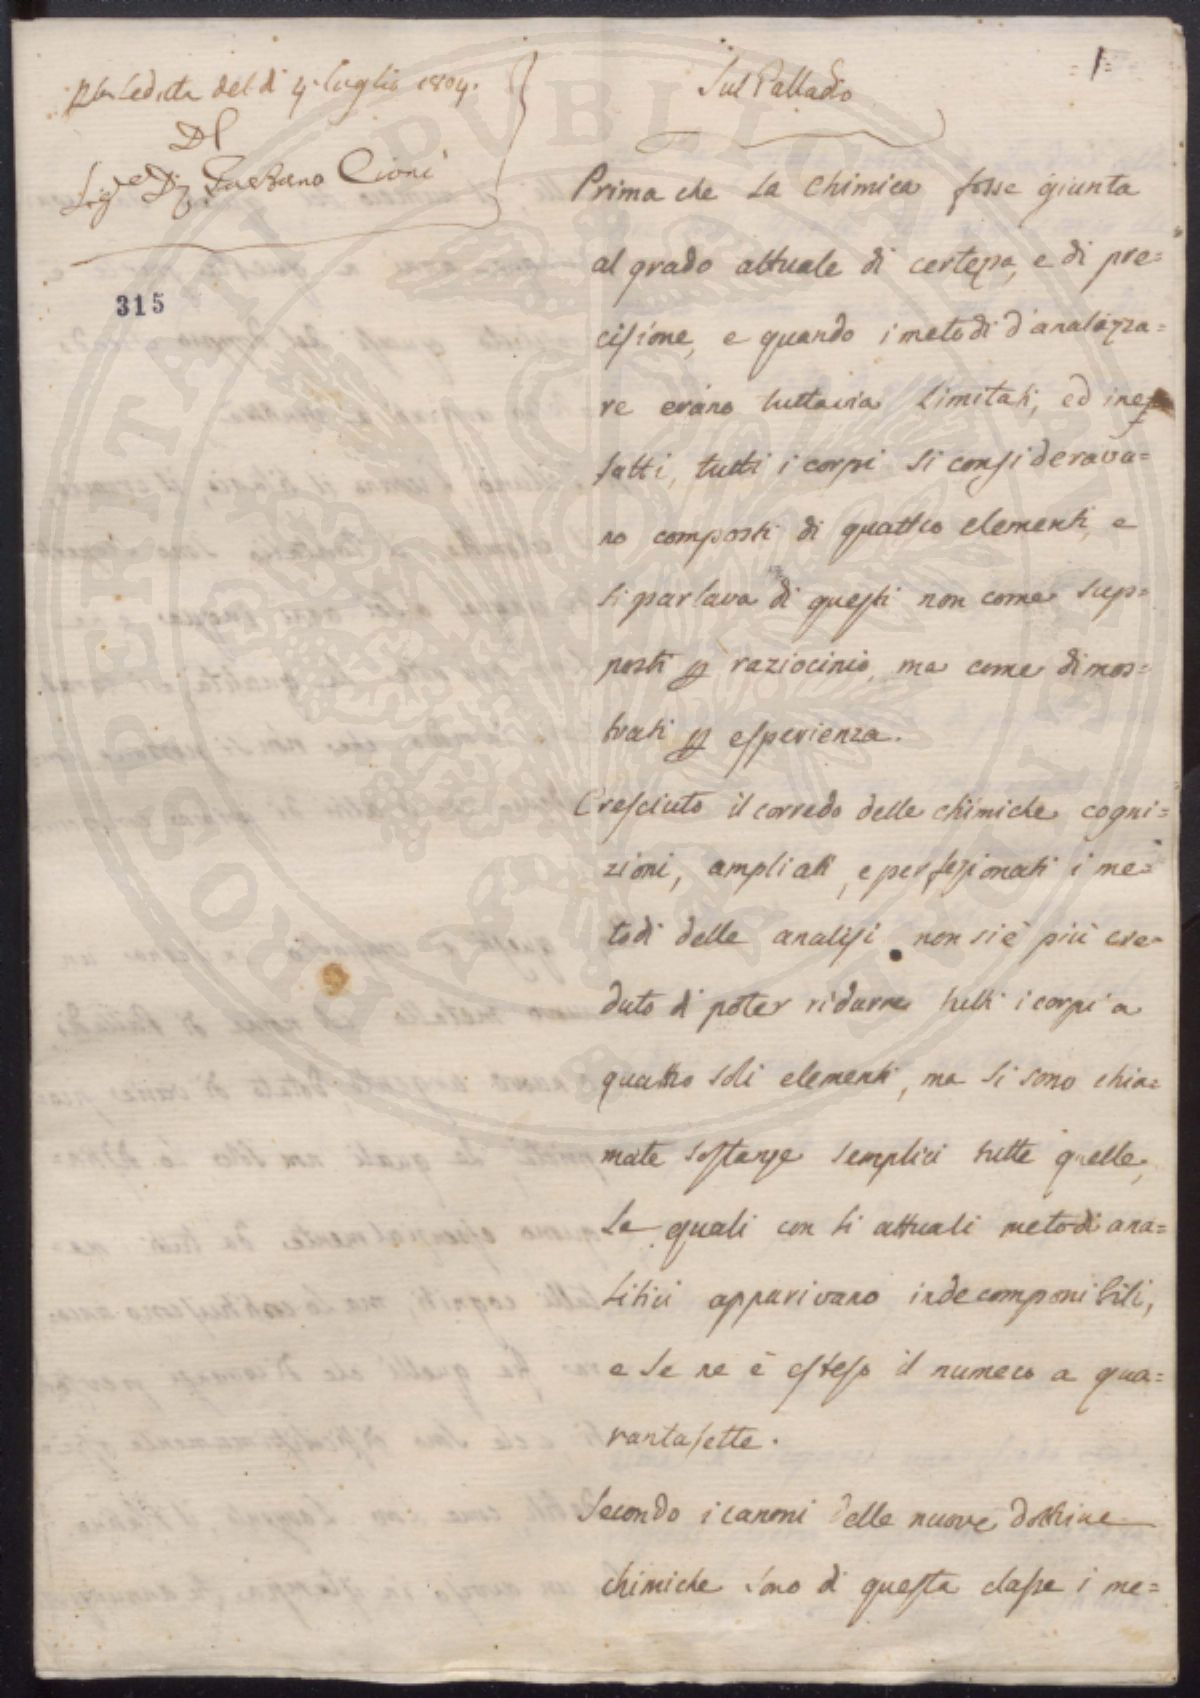 letta del dì 4. luglio 1804.
Dal
Sig.re D. Gaetano Cioni
315
1
Sul Palladio
Prima che la Chimica fosse giunta
al grado attuale di certezza, e di pre=
cisione, e quando i metodi d'analizza=
re erano tuttavia limitati, ed ine=
satti, tutti i corpi si considerava=
no composti di quattro elementi, e
si parlava di questi non come sup=
posti p raziocinio, ma come dimos=
trati p esperienza.
Cresciuto il corredo delle chimiche cogni=
zioni, ampliati, e perfezionati i me=
todi delle analisi non si è più cre=
duto di poter ridurre tutti i corpi a
quattro soli elementi, ma si sono chia=
mate sostanze semplici tutte quelle,
le quali con li attuali metodi ana=
litici apparivano indecomponibili,
e se ne è esteso il numero a qua=
rantasette.
Secondo i canoni delle nuove dottrine
chimiche sono di questa classe i me=
PROSPERITATI PUBLICAE AUGENDAE